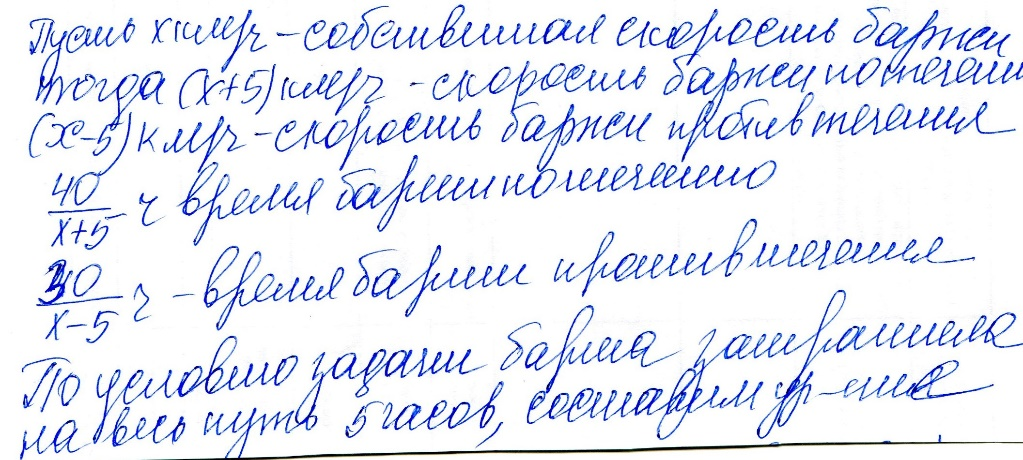 Пусть х км/ч - собственная скорость баржи
тогда (х+5) км/ч - скорость баржи по течени
(х-5) км/ч - скорость баржи против течения
40/х+5 ч время баржи по течению
30/х-5 ч - время баржи против течения
По условию задачи баржа затратила
на весь путь 5 часов, составим ур-ние